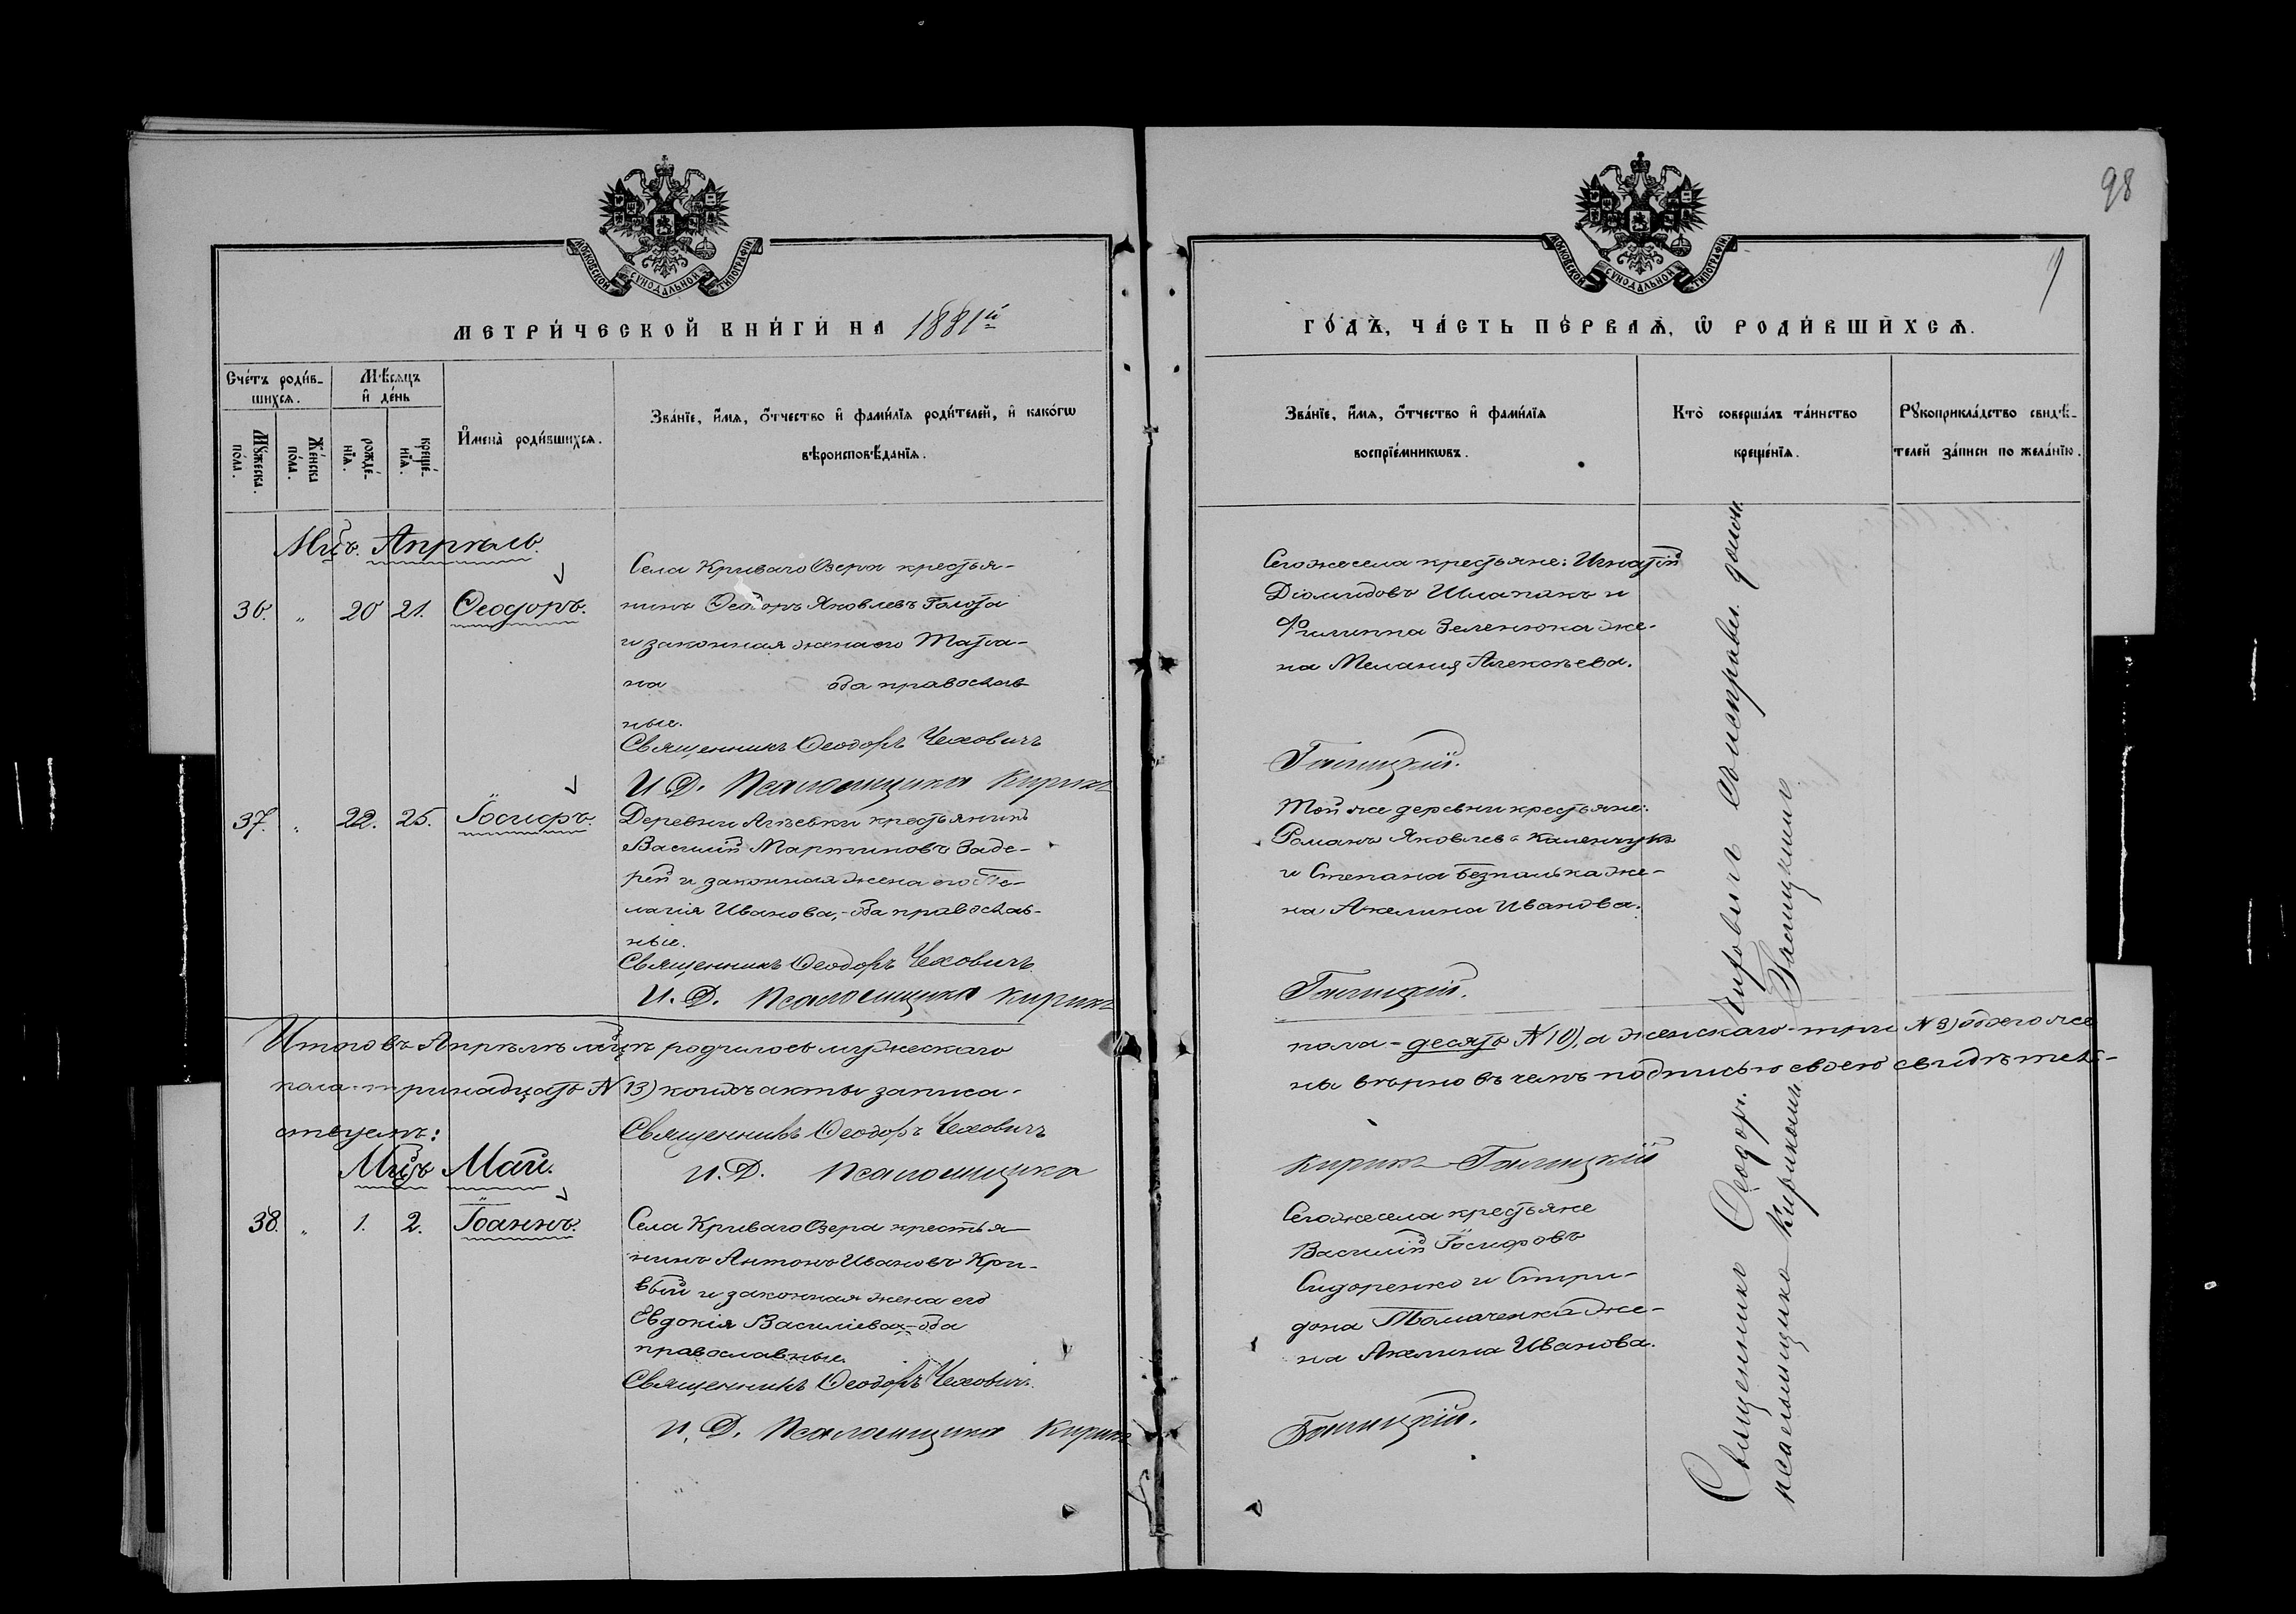 98
МОСКОВСКОЙ СѴНОДАЛЬНОЙ ТИПОГРАФІИ
МЕТРИ́ЧЕСКОЙ КНИ́ГИ НА 1881й
Сче́тъ роди́вшихся.
Мѣ́сяцъ и҆ де́нь
Мꙋ́жеска по́ла.
Же́нска по́ла.
рожде́нїя.
креще́нїя.
И҆мена̀ роди́вшихся.
Зва́нїе, и҆́мя, ѻ҆́тчество и҆ фами́лїя роди́телей, и҆ како́гѡ
вѣроисповѣ́данїя.
Мцъ. Апрѣль.
36. " 20 21. Ѳеодоръ.
Села Криваго Озера крестья-
нинъ Ѳеодоръ Яковлевъ Голота
и законная жена его Татиа-
на оба православ
ные.
Священникъ Ѳеодоръ Чехович
И. Д. Псаломщика Кирикъ
37. " 22. 25. Іосифъ.
Деревни крестьянинъ
Василій Мартиновъ Заде-
рей и законная жена его Пе-
лагія Иванова, - оба православ-
ные.
Священникъ Ѳеодоръ Чеховичъ
И. Д. Псаломщика Кирикъ
Итого въ Апрѣлѣ мцѣ родилось мужескаго
пола - тринадцать № 13) коихъ акты записа-
ствуемъ:
Священникъ Ѳеодоръ Чеховичъ
И. Д. Псаломщика
Мцъ Май.
38. " 1. 2. Іоаннъ.
Села Криваго Озера крестья
нинъ Антонъ Ивановъ Кри-
вый и законная жена его
Евдокія Василіева - оба
православные.
Священникъ Ѳеодоръ Чехович
И. Д. Псаломщика Кирикъ
МОСКОВСКОЙ СѴНОДАЛЬНОЙ ТИПОГРАФІИ
ГО́ДЪ, ЧА́СТЬ ПЕ́РВАЯ, Ѡ҆ РОДИ́ВШИХСЯ.
Зва́нїе, и҆́мя, ѻ҆́тчество и҆ фами́лїя
воспрїе́мникѡвъ.
Кто̀ соверша́лъ та́инство
креще́нїя.
Рꙋкоприкла́дство свидѣ́-
телей за́писи по жела́нїю.
Сего же села крестьяне: Игнатій
Діомидовъ Шлапакъ и
Филиппа Зеленюка же-
на Мелания Алексѣева.
Той же деревни крестьяне:
Романъ Яковлевъ Каленчукъ
и Степана Безпалька же-
на Акелина Иванова.
пола - десять № 10), а женскаго - три № 3) обоего же
ны вѣрно въ чемъ подписью своею свидѣтель-
Кирикъ
Сего же села крестьяне
Василій Іосифовъ
Сидоренко и Спири-
дона же-
на Акелина Иванова.
Священникъ Ѳеодоръ Чеховичъ
псаломщикомъ Кирикомъ